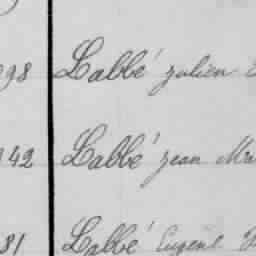 98 Labbé Julien
142 Labbé Jean Ma
81 Labbé Eugène